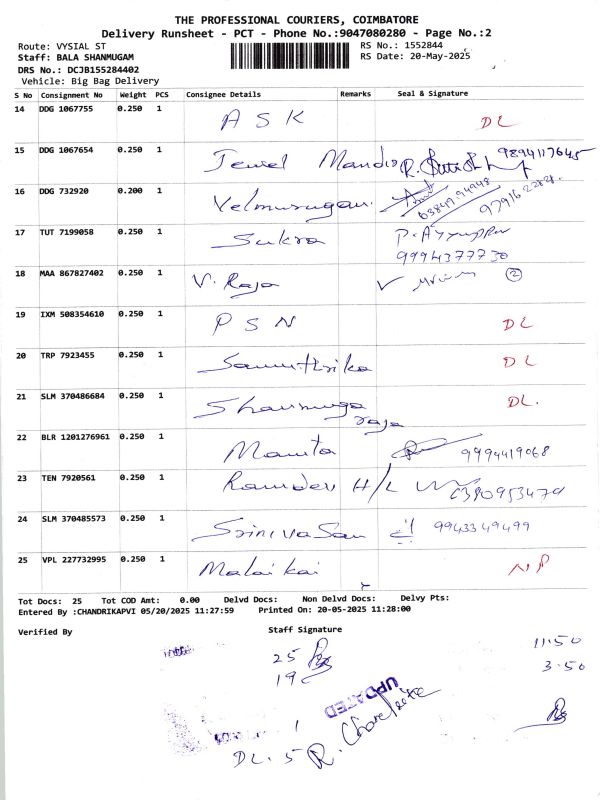 THE PROFESSIONAL COURIERS, COIMBATORE
Delivery Runsheet - PCT - Phone No.:9047080280 - Page No.:2
Route: VYSIAL ST
RS No.: 1552844
Staff: BALA SHANMUGAM
RS Date: 20-May-2025
DRS No.: DCJB155284402
Vehicle: Big Bag Delivery
S No Consignment No Weight PCS Consignee Details Remarks Seal & Signature
14 DDG 1067755 0.250 1 A S K DL
15 DDG 1067654 0.250 1 Jewel Mandir 9894117645
16 DDG 732920 0.200 1 Velmurugan. 63849 94948
17 TUT 7199058 0.250 1 Sukra P. Ayyappan
9994377730
18 MAA 867827402 0.250 1 V. Raja 2
19 IXM 508354610 0.250 1 P S N DL
20 TRP 7923455 0.250 1 Samuthrika DL
21 SLM 370486684 0.250 1 Shanmuga DL.
raja
22 BLR 1201276961 0.250 1 Mamta 9994419068
23 TEN 7920561 0.250 1 Ramdev H/L 6380953479
24 SLM 370485573 0.250 1 Srinivasan 9943349499
25 VPL 227732995 0.250 1 Malaikai NP
Tot Docs: 25 Tot COD Amt: 0.00 Delvd Docs: Non Delvd Docs: Delvy Pts:
Entered By :CHANDRIKAPVI 05/20/2025 11:27:59 Printed On: 20-05-2025 11:28:00
Verified By Staff Signature
25 11:50
19 3.50
UPDATED
1
DL. 5